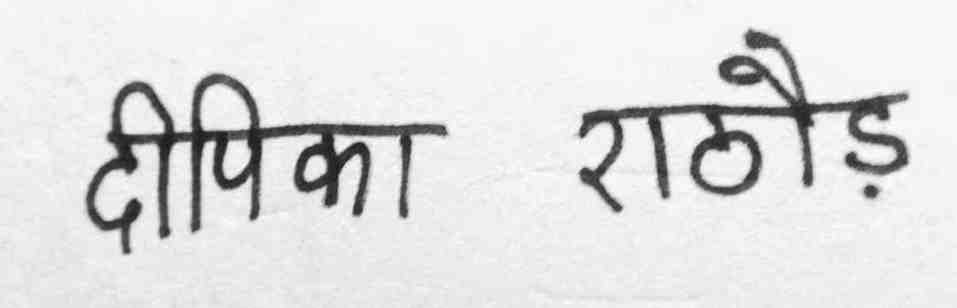 दीपिका राठौड़